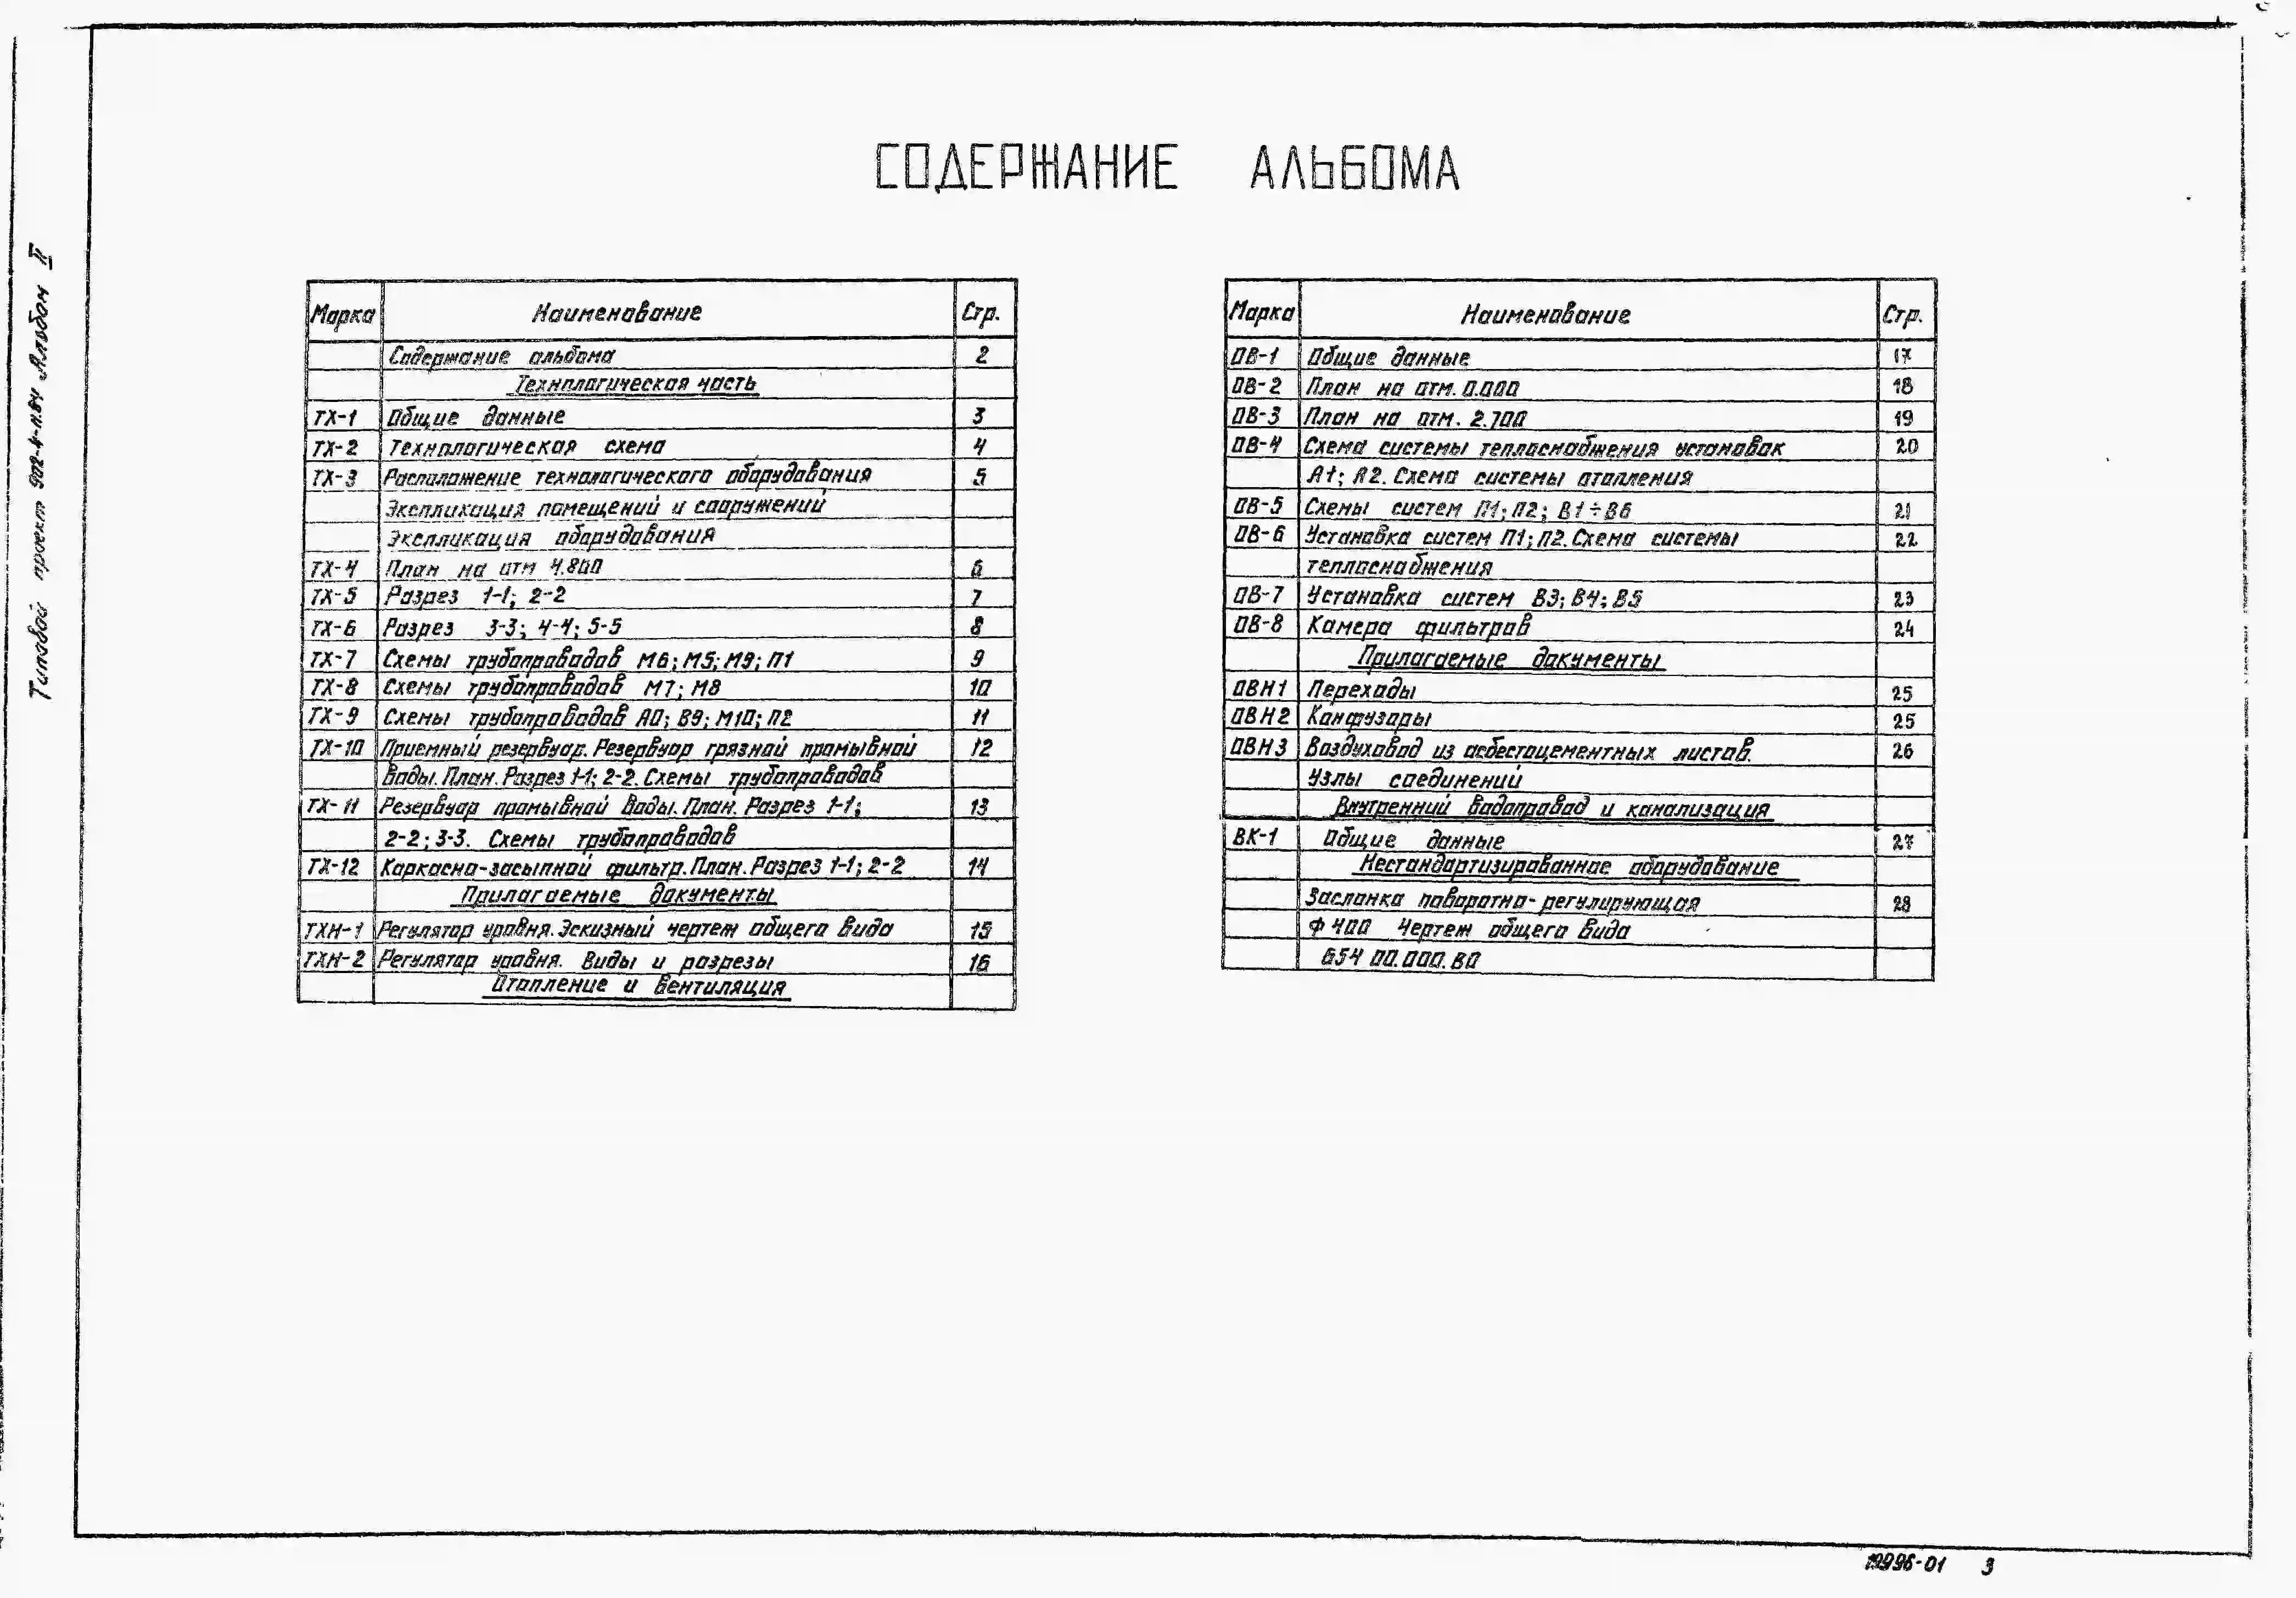 Типовой проект 902-4-11.84 Альбом II
СОДЕРЖАНИЕ АЛЬБОМА
Марка Наименование Стр.
Содержание альбома 2
Технологическая часть
ТХ-1 Общие данные 3
ТХ-2 Технологическая схема 4
ТХ-3 Расположение технологического оборудования 5
Экспликация помещений и сооружений
Экспликация оборудования
ТХ-4 План на отм 4.800 6
ТХ-5 Разрез 1-1; 2-2 7
ТХ-6 Разрез 3-3; 4-4; 5-5 8
ТХ-7 Схемы трубопроводов М6; М5; М9; П1 9
ТХ-8 Схемы трубопроводов М7; М8 10
ТХ-9 Схемы трубопроводов А0; В9; М10; П2 11
ТХ-10 Приемный резервуар. Резервуар грязной промывной 12
воды. План. Разрез 1-1; 2-2. Схемы трубопроводов
ТХ-11 Резервуар промывной воды. План. Разрез 1-1; 13
2-2; 3-3. Схемы трубопроводов
ТХ-12 Каркасно-засыпной фильтр. План. Разрез 1-1; 2-2 14
Прилагаемые документы
ТХН-1 Регулятор уровня. Эскизный чертеж общего вида 15
ТХН-2 Регулятор уровня. Виды и разрезы 16
Отопление и вентиляция
Марка Наименование Стр.
ОВ-1 Общие данные 17
ОВ-2 План на отм. 0.000 18
ОВ-3 План на отм. 2.700 19
ОВ-4 Схема системы теплоснабжения установок 20
А1; А2. Схема системы отопления
ОВ-5 Схемы систем П1; П2; В1÷В6 21
ОВ-6 Установка систем П1; П2. Схема системы 22
теплоснабжения
ОВ-7 Установка систем В3; В4; В5 23
ОВ-8 Камера фильтров 24
Прилагаемые документы
ОВН1 Переходы 25
ОВН2 Конфузоры 25
ОВН3 Воздуховод из асбестоцементных листов. 26
Узлы соединений
Внутренний водопровод и канализация
ВК-1 Общие данные 27
Нестандартизированное оборудование
Заслонка поворотно-регулирующая 28
Ф 400 Чертеж общего вида
654 00.000.ВО
19996-01 3